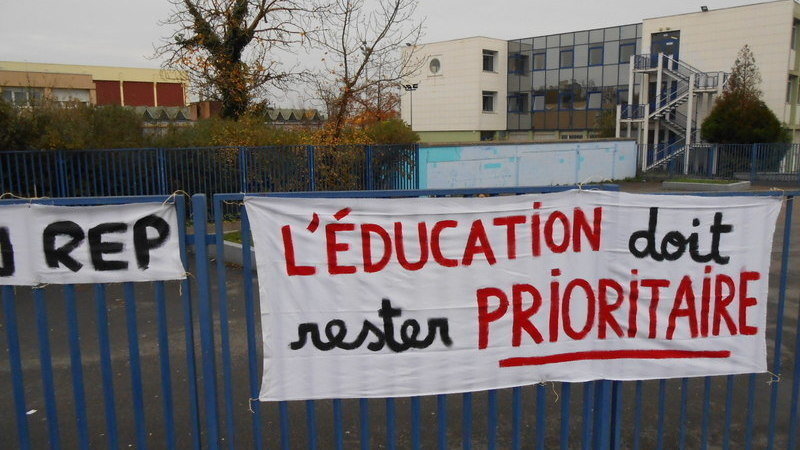 REP
L'ÉDUCATION doit
rester PRIORITAIRE